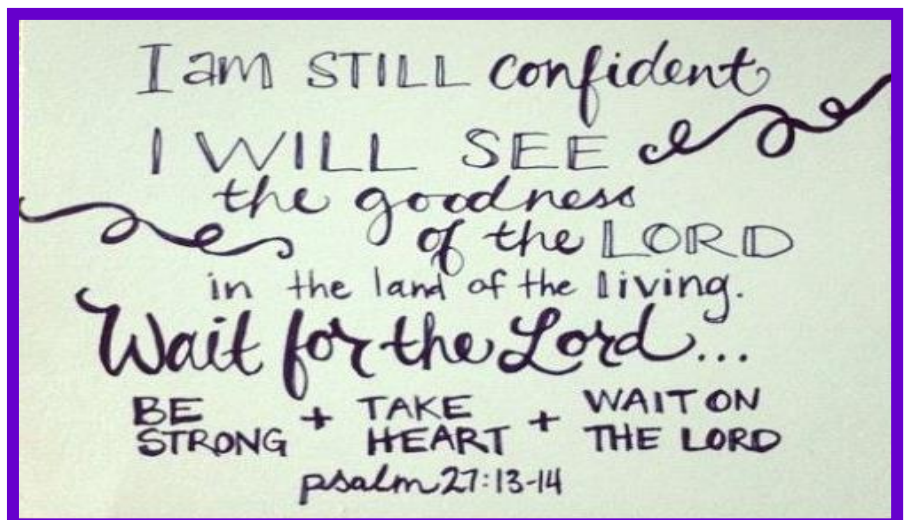 I am STILL confident
I WILL SEE
the goodness
of the LORD
in the land of the living.
Wait for the Lord...
BE STRONG + TAKE HEART + WAIT ON THE LORD
psalm 27:13-14